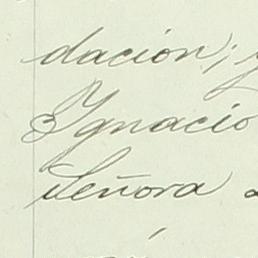 dacion; y
Ygnacio
Señora